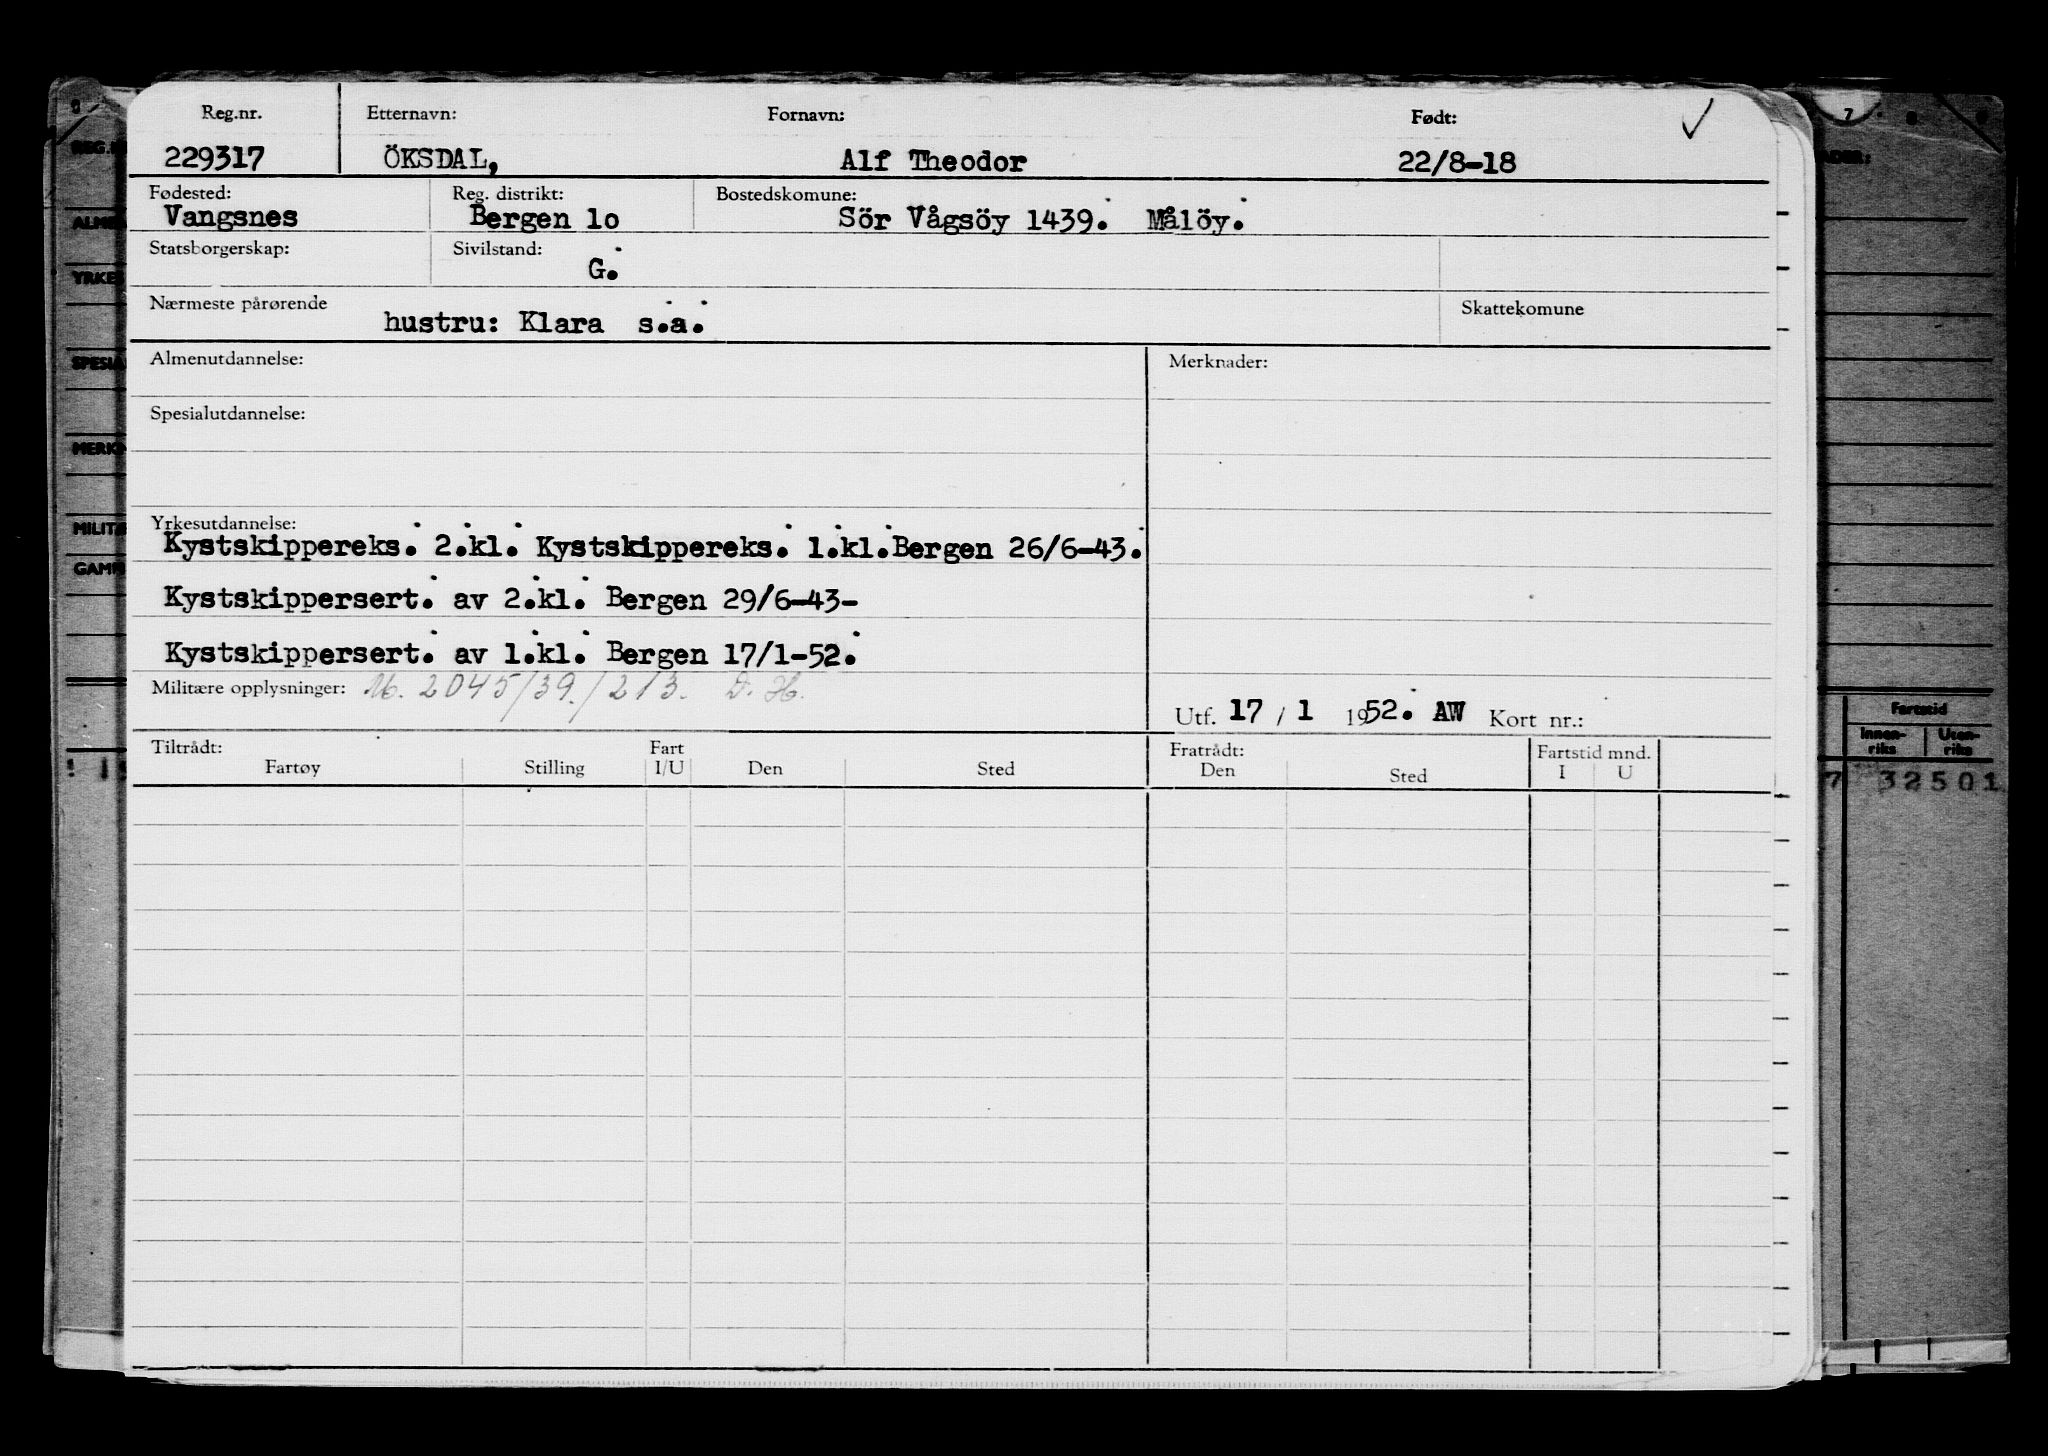 Reg.nr. Etternavn: Fornavn: Født:
229317 ÖKSDAL, Alf Theodor 22/8-18
Fødested: Reg. distrikt: Bostedskomune:
Vangsnes Bergen lo Sör Vågsöy 1439. Målöy.
Statsborgerskap: Sivilstand:
G.
Nærmeste pårørende Skattekomune
hustru: Klara s.a.
Almenutdannelse: Merknader:
Spesialutdannelse:
Yrkesutdannelse:
Kystskippereks. 2.kl. Kystskippereks. 1.kl.Bergen 26/6-43.
Kystskippersert. av 2.kl. Bergen 29/6-43-
Kystskippersert. av 1.kl. Bergen 17/1-52.
Militære opplysninger: M. 2045/39./213. D. H.
Utf. 17 / 1 1952. AW Kort nr.:
Tiltrådt: Fart Fratrådt: Fartstid mnd.
Fartøy Stilling I/U Den Sted Den Sted I U
7 8
Fartstid
Innen-riks Uten-riks
7 32501